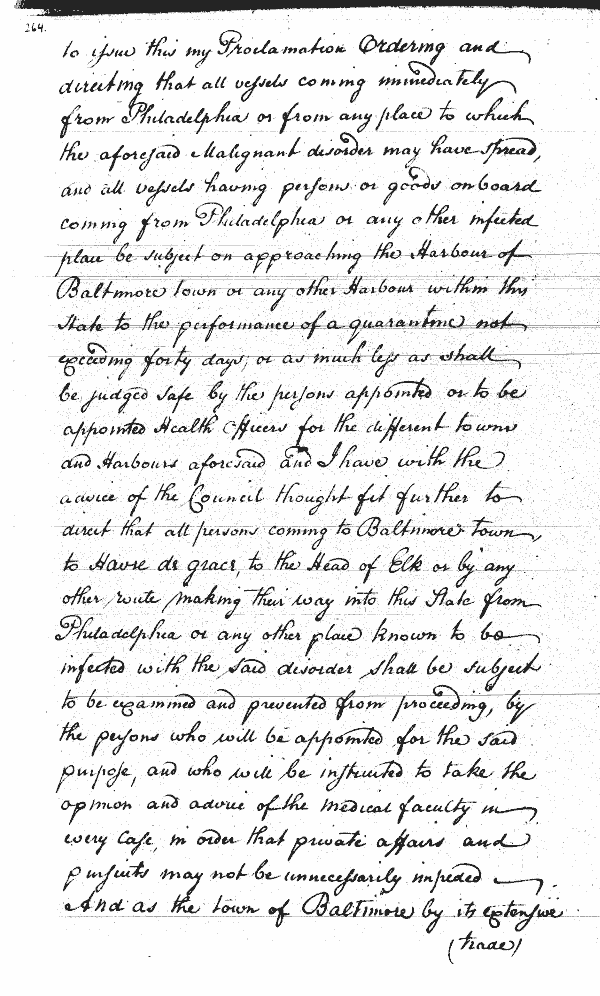 264.
to issue this my Proclamation Ordering and
directing that all vessels coming immediately
from Philadelphia or from any place to which
the aforesaid Malignant disorder may have spread,
and all vessels having persons or goods on board
coming from Philadelphia or any other infected
place be subject on approaching the Harbour of
Baltimore town or any other Harbour within this
State to the performance of a quarantine not
exceeding forty days, or as much less as shall
be judged safe by the persons appointed or to be
appointed Health Officers for the different towns
and Harbours aforesaid and I have with the
advice of the Council thought fit further to
direct that all persons coming to Baltimore town,
to Havre de grace, to the Head of Elk or by any
other route making their way into this State from
Philadelphia or any other place known to be
infected with the said disorder shall be subject
to be examined and prevented from proceeding, by
the persons who will be appointed for the said
purpose, and who will be instructed to take the
opinion and advice of the medical faculty in
every Case, in order that private affairs and
pursuits may not be unnecessarily impeded.
And as the town of Baltimore by its extensive
(trade)